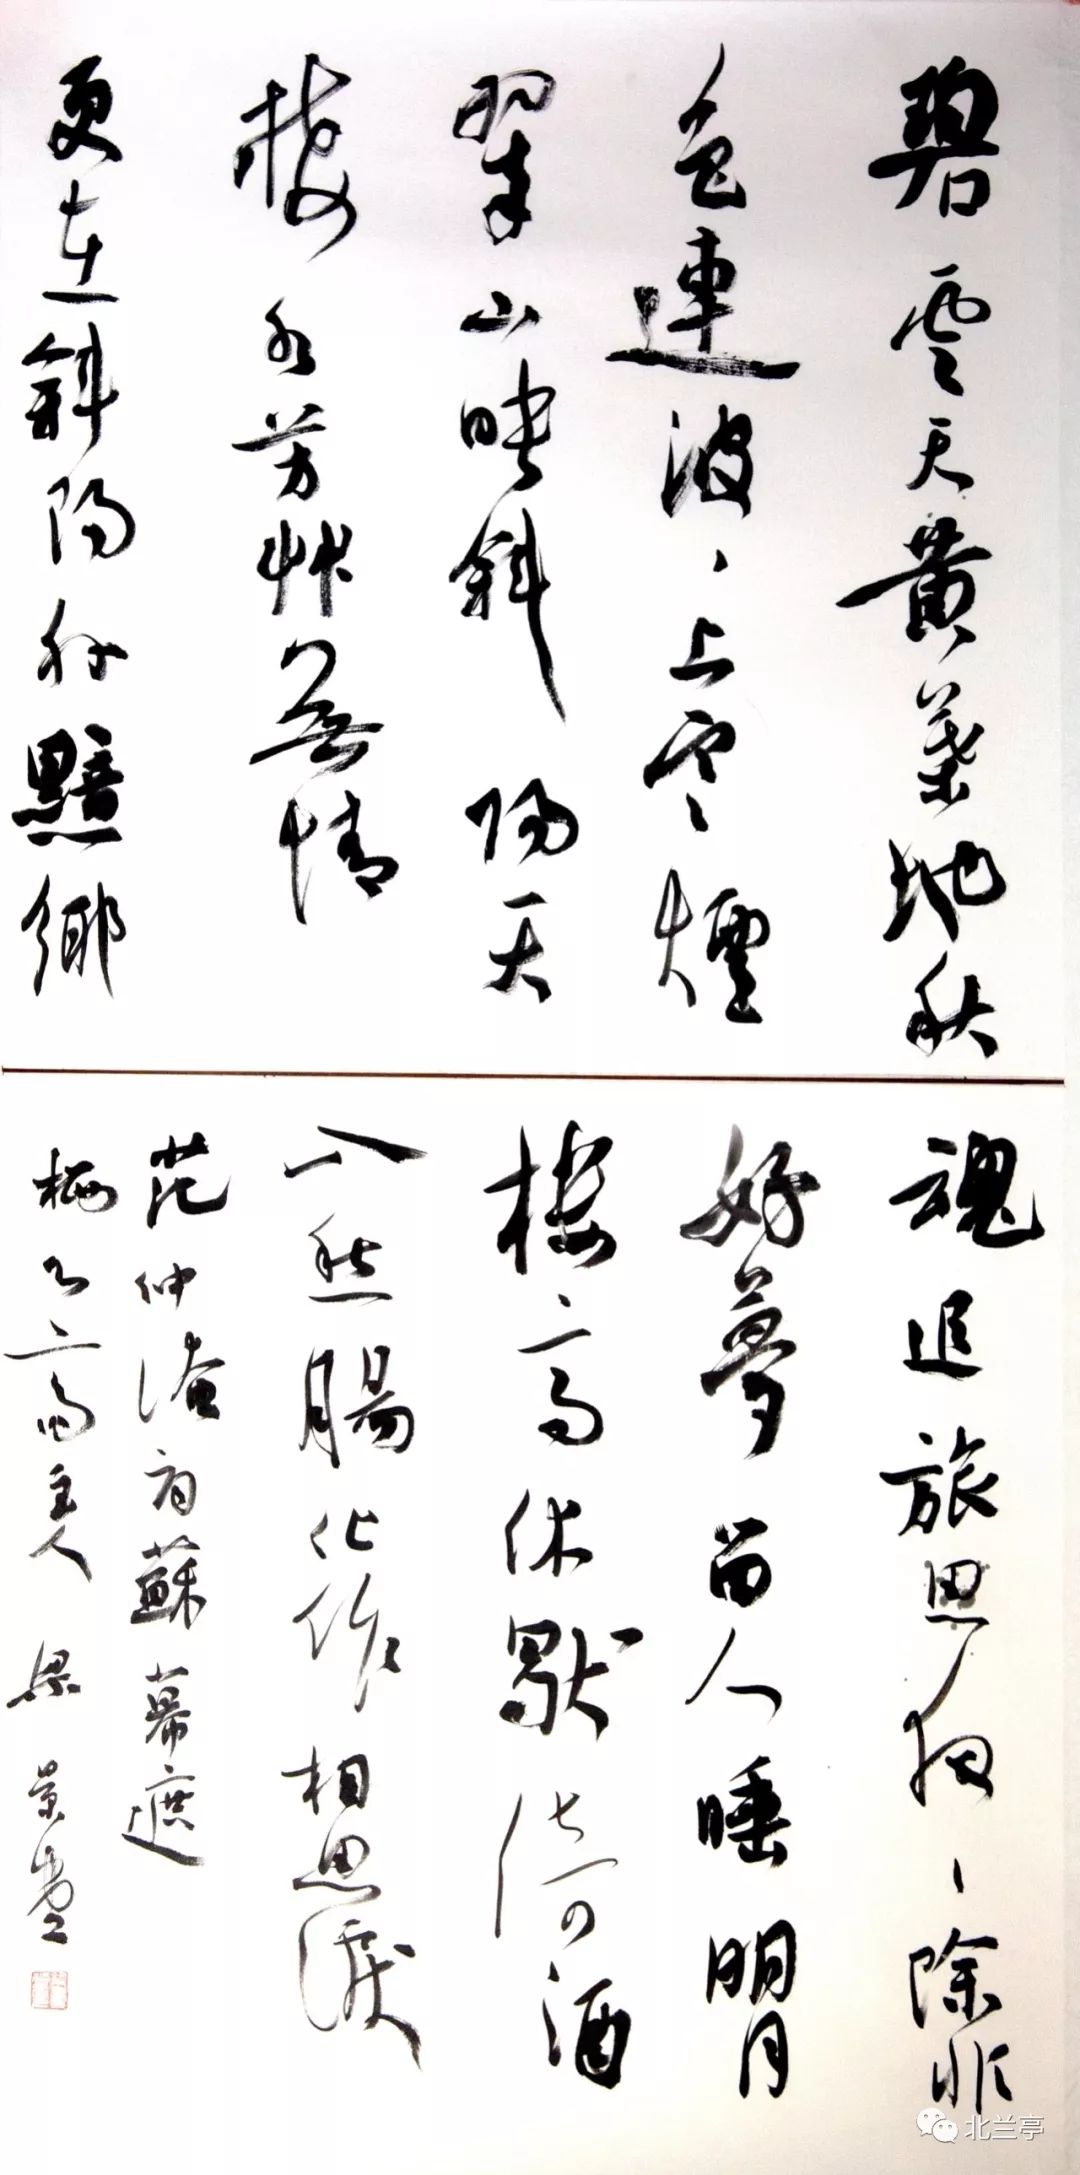 碧雲天黃葉地秋
色連波、上寒煙
翠山映斜陽天
接水芳艸無情
更在斜陽外黯鄉
魂追旅思夜、除非
好夢留人睡明月
樓高休獨倚酒
入愁腸化作相思淚
范仲淹詞蘇幕遮
主人 梁
北兰亭